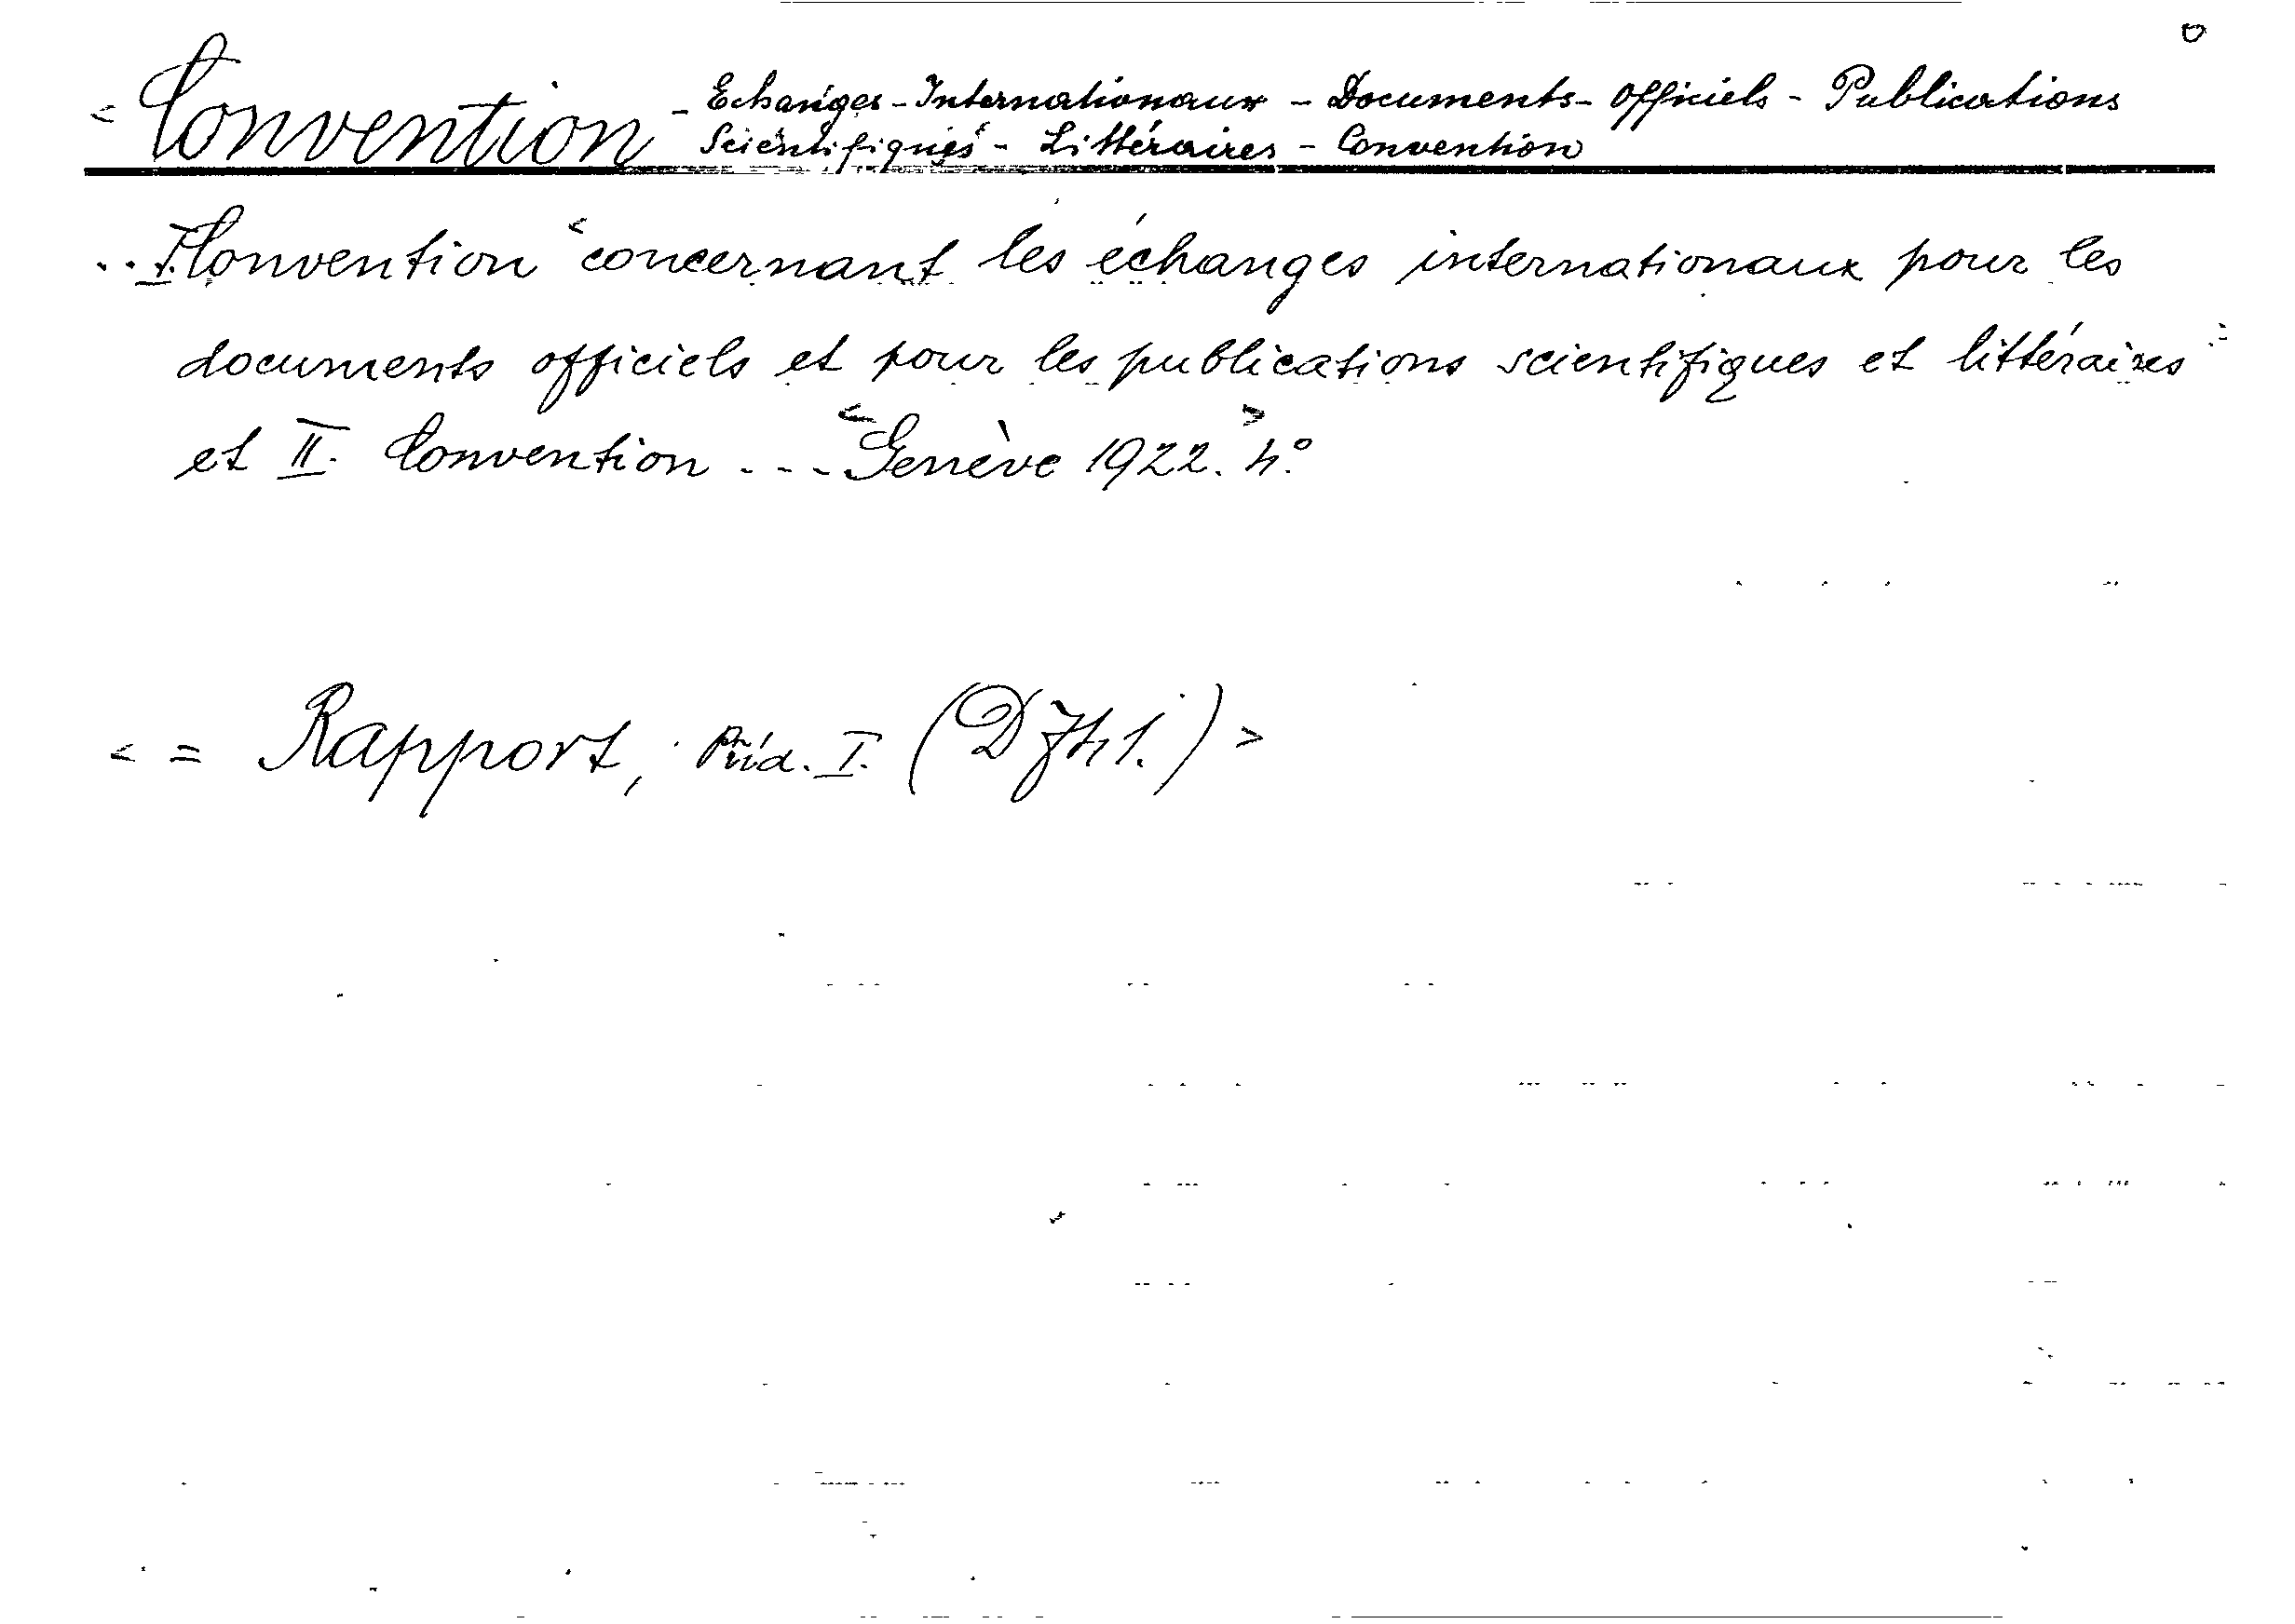 < Convention - Echanges - Internationaux - Documents - Officiels - Publications
Scientifiques - Littéraires - Convention
.. I. Convention < concernant les échanges internationaux pour les
documents officiels et pour les publications scientifiques et littéraires
et II. Convention ... < Genève 1922. > 4°.
< = Rapport, Příd. I. (D 741.) >